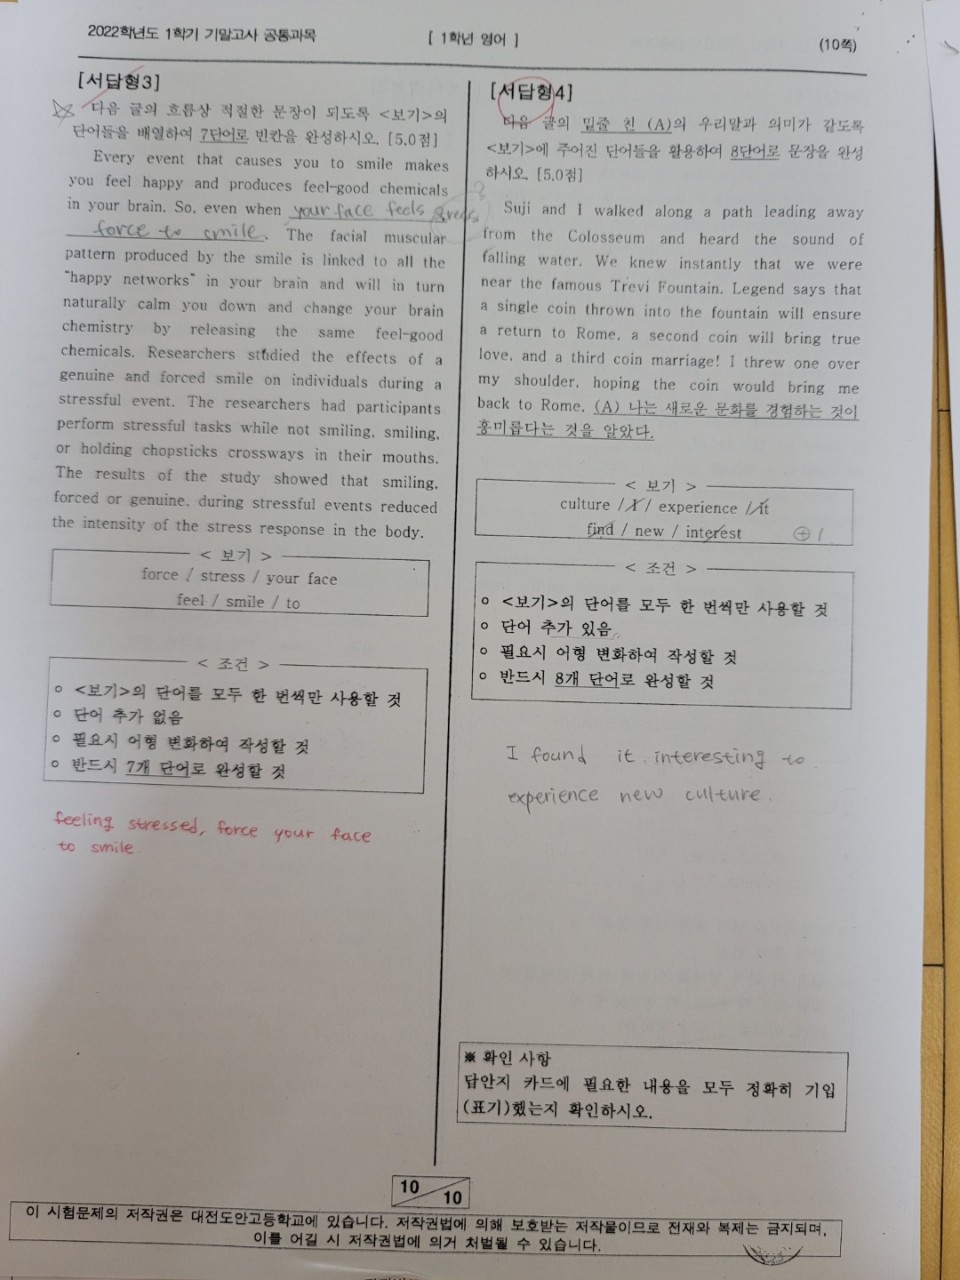 2022학년도 1학기 기말고사 공통과목
[ 1학년 영어 ]
(10쪽)
[서답형3]
다음 글의 흐름상 적절한 문장이 되도록 <보기>의
단어들을 배열하여 7단어로 빈칸을 완성하시오. [5.0점]
Every event that causes you to smile makes
you feel happy and produces feel-good chemicals
in your brain. So, even when your face feels stress
force to smile. The facial muscular
pattern produced by the smile is linked to all the
"happy networks" in your brain and will in turn
naturally calm you down and change your brain
chemistry by releasing the same feel-good
chemicals. Researchers studied the effects of a
genuine and forced smile on individuals during a
stressful event. The researchers had participants
perform stressful tasks while not smiling, smiling,
or holding chopsticks crossways in their mouths.
The results of the study showed that smiling,
forced or genuine, during stressful events reduced
the intensity of the stress response in the body.
< 보기 >
force / stress / your face
feel / smile / to
< 조건 >
○ <보기>의 단어를 모두 한 번씩만 사용할 것
○ 단어 추가 없음
○ 필요시 어형 변화하여 작성할 것
○ 반드시 7개 단어로 완성할 것
feeling stressed, force your face
to smile.
[서답형4]
다음 글의 밑줄 친 (A)의 우리말과 의미가 같도록
<보기>에 주어진 단어들을 활용하여 8단어로 문장을 완성
하시오. [5.0점]
Suji and I walked along a path leading away
from the Colosseum and heard the sound of
falling water. We knew instantly that we were
near the famous Trevi Fountain. Legend says that
a single coin thrown into the fountain will ensure
a return to Rome, a second coin will bring true
love, and a third coin marriage! I threw one over
my shoulder, hoping the coin would bring me
back to Rome. (A) 나는 새로운 문화를 경험하는 것이
흥미롭다는 것을 알았다.
< 보기 >
culture / I / experience / it
find / new / interest ⊕1
< 조건 >
○ <보기>의 단어를 모두 한 번씩만 사용할 것
○ 단어 추가 있음
○ 필요시 어형 변화하여 작성할 것
○ 반드시 8개 단어로 완성할 것
I found it interesting to
experience new culture.
※ 확인 사항
답안지 카드에 필요한 내용을 모두 정확히 기입
(표기)했는지 확인하시오.
10
10
이 시험문제의 저작권은 대전도안고등학교에 있습니다. 저작권법에 의해 보호받는 저작물이므로 전재와 복제는 금지되며,
이를 어길 시 저작권법에 의거 처벌될 수 있습니다.